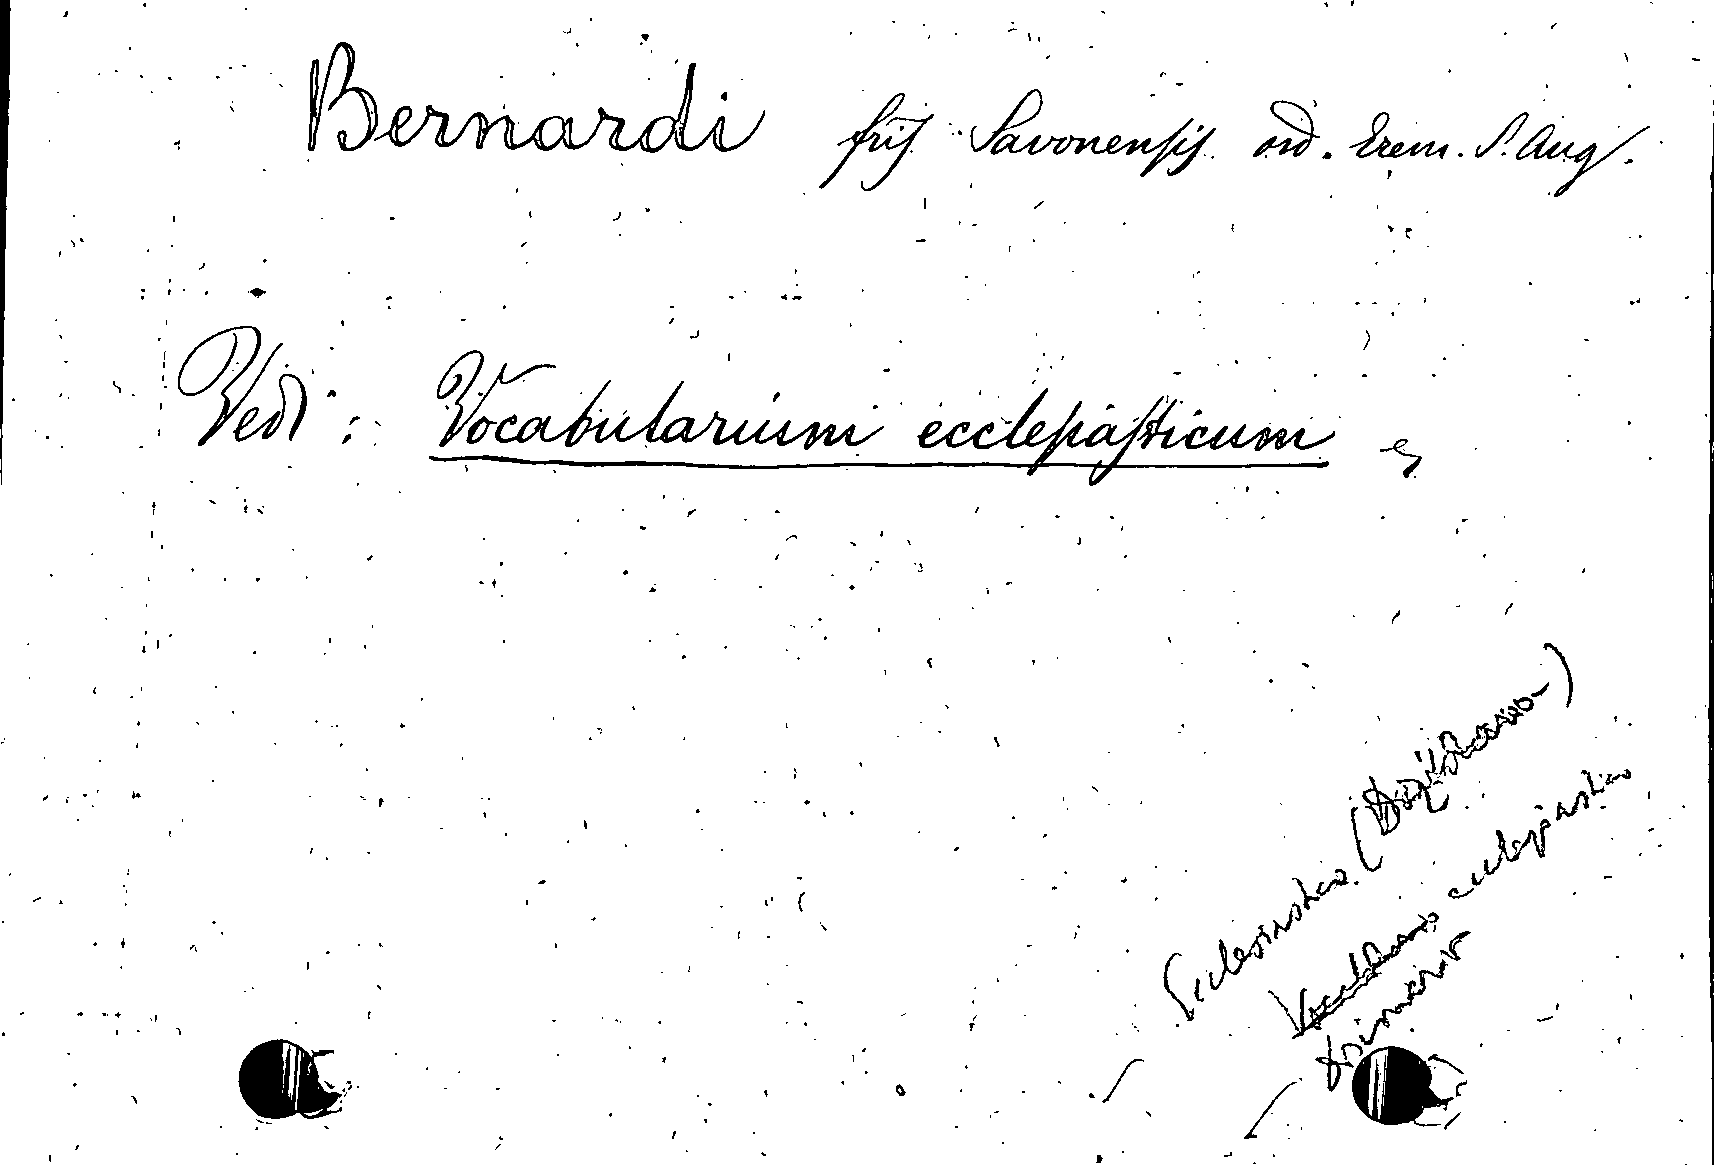 Bernardi fris Savonensis ord. Erem. S. Aug.
Vedi: Vocabularium ecclesiasticum
Ecclesiastico (Dizionario)
Vocabolario ecclesiastico